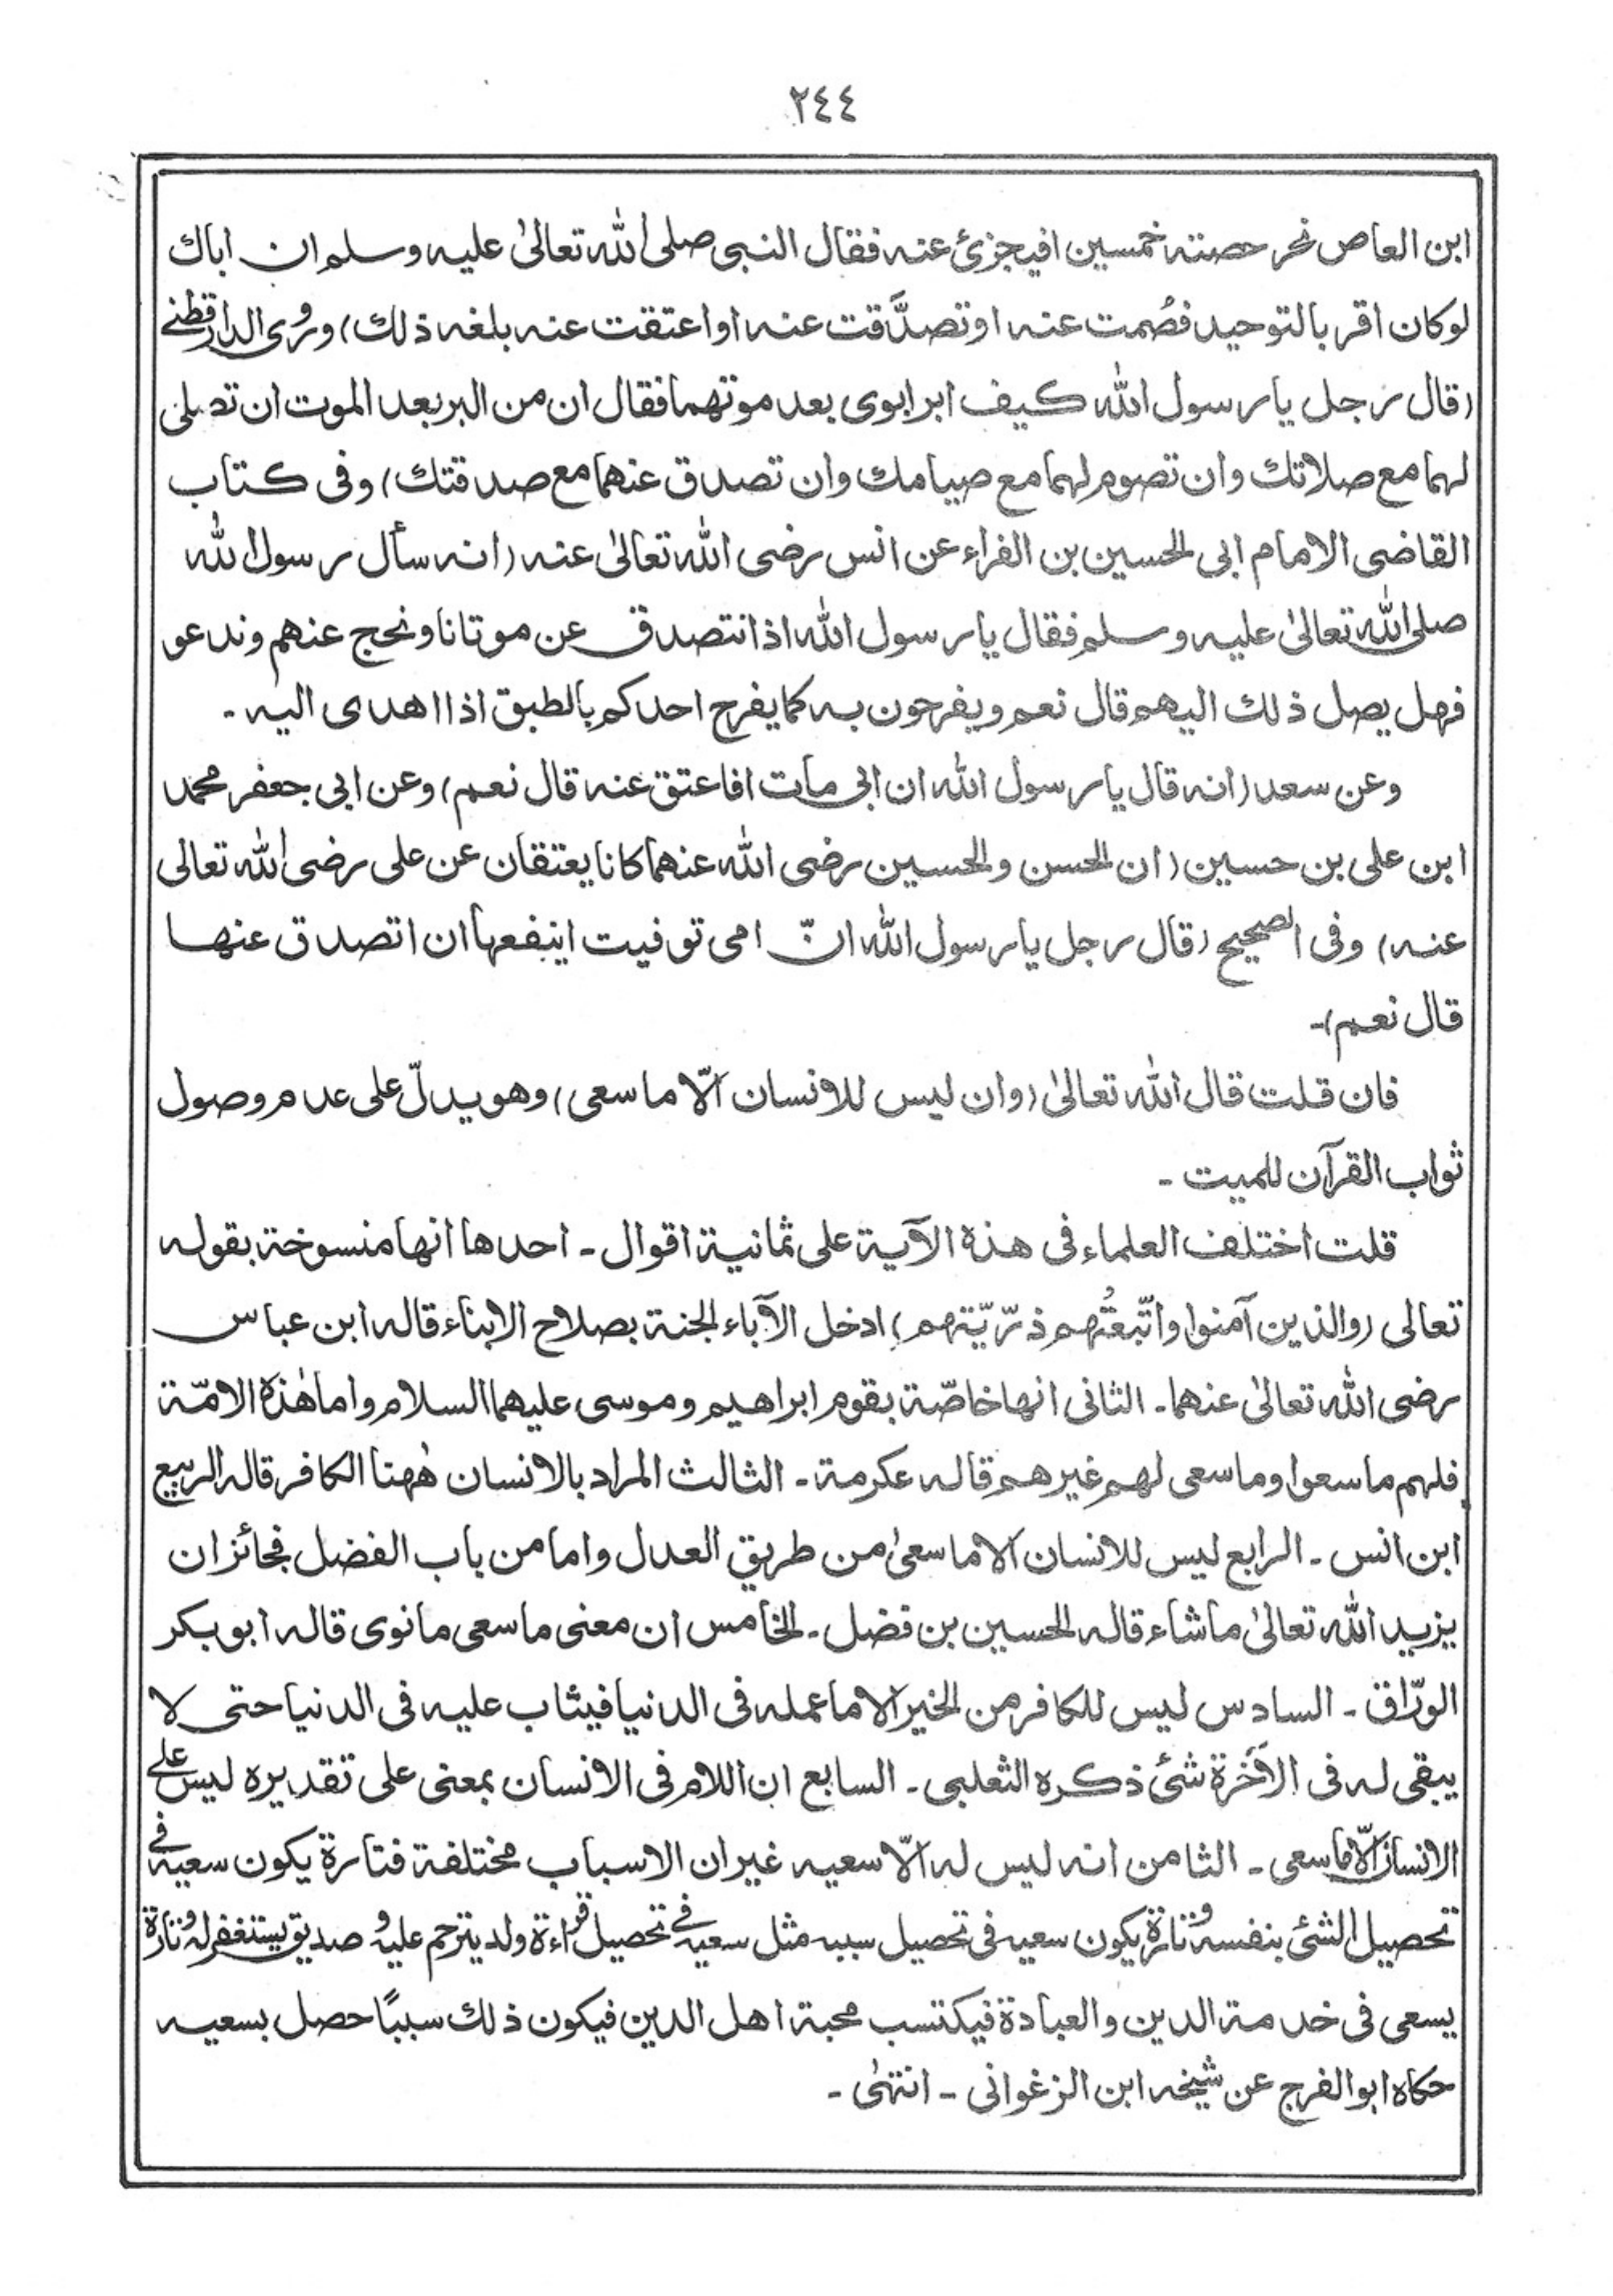 ٢٤٤
ابن العاص نحر حصته خمسين افيجزئ عنه فقال النبى صلى الله تعالىٰ عليه وسلم ان اباك
لو كان اقر بالتوحيد فصُمت عنه او تصدَّقت عنه او اعتقت عنه بلغه ذلك) وروى الدارقطنے
(قال رجل يا رسول الله كيف ابر ابوى بعد موتهما فقال ان من البر بعد الموت ان تصلى
لهما مع صلاتك وان تصوم لهما مع صيامك وان تصدق عنهما مع صدقتك) وفى كتاب
القاضى الامام ابى الحسين بن الفراء عن انس رضى الله تعالىٰ عنه (انه سأل رسول الله
صلى الله تعالىٰ عليه وسلم فقال يا رسول الله اذا نتصدق عن موتانا ونحج عنهم وندعو
فهل يصل ذلك اليهم قال نعم ويفرحون به كما يفرح احدكم بالطبق اذا اهدى اليه -
وعن سعد (انه قال يا رسول الله ان ابى مات افاعتق عنه قال نعم) وعن ابى جعفر محمد
ابن على بن حسين (ان الحسن والحسين رضى الله عنهما كانا يعتقان عن على رضى الله تعالى
عنه) وفى الصحيح (قال رجل يا رسول الله انّ امى توفيت اينفعها ان اتصدق عنها
قال نعم)-
فان قلت قال الله تعالىٰ (وان ليس للانسان الّا ما سعى) وهو يدلّ على عدم وصول
ثواب القرآن للميت -
قلت اختلف العلماء فى هذه الآية على ثمانية اقوال - احدها انها منسوخة بقوله
تعالى (والذين آمنوا واتّبعتُهم ذرّيّتهم) ادخل الآباء الجنة بصلاح الابناء قاله ابن عباس
رضى الله تعالىٰ عنهما - الثانى انها خاصّة بقوم ابراهيم وموسى عليهما السلام واما هٰذه الامّة
فلهم ما سعوا وما سعى لهم غيرهم قاله عكرمة - الثالث المراد بالانسان هٰهنا الكافر قاله الربيع
ابن انس - الرابع ليس للانسان الا ما سعىٰ من طريق العدل واما من باب الفضل فجائز ان
يزيد الله تعالىٰ ما شاء قاله الحسين بن فضل - الخامس ان معنى ما سعى ما نوى قاله ابو بكر
الورّاق - السادس ليس للكافر من الخير الا ما عمله فى الدنيا فيثاب عليه فى الدنيا حتى لا
يبقى له فى الآخَرة شئ ذكره الثعلبى - السابع ان اللام فى الانسان بمعنى على تقديره ليس علے
الانسان الّا ما سعى - الثامن انه ليس له الّا سعيه غير ان الاسباب مختلفة فتارة يكون سعيه فے
تحصيل الشئ بنفسه وتارة يكون سعيه فى تحصيل سببه مثل سعيه فے تحصيل قراءة ولد يترحم عليه و صديق يستغفر له وتارة
يسعى فى خدمة الدين والعبادة فيكتسب محبة اهل الدين فيكون ذلك سببًا حصل بسعيه
حكاه ابو الفرج عن شيخه ابن الزغوانى - انتهٰى -